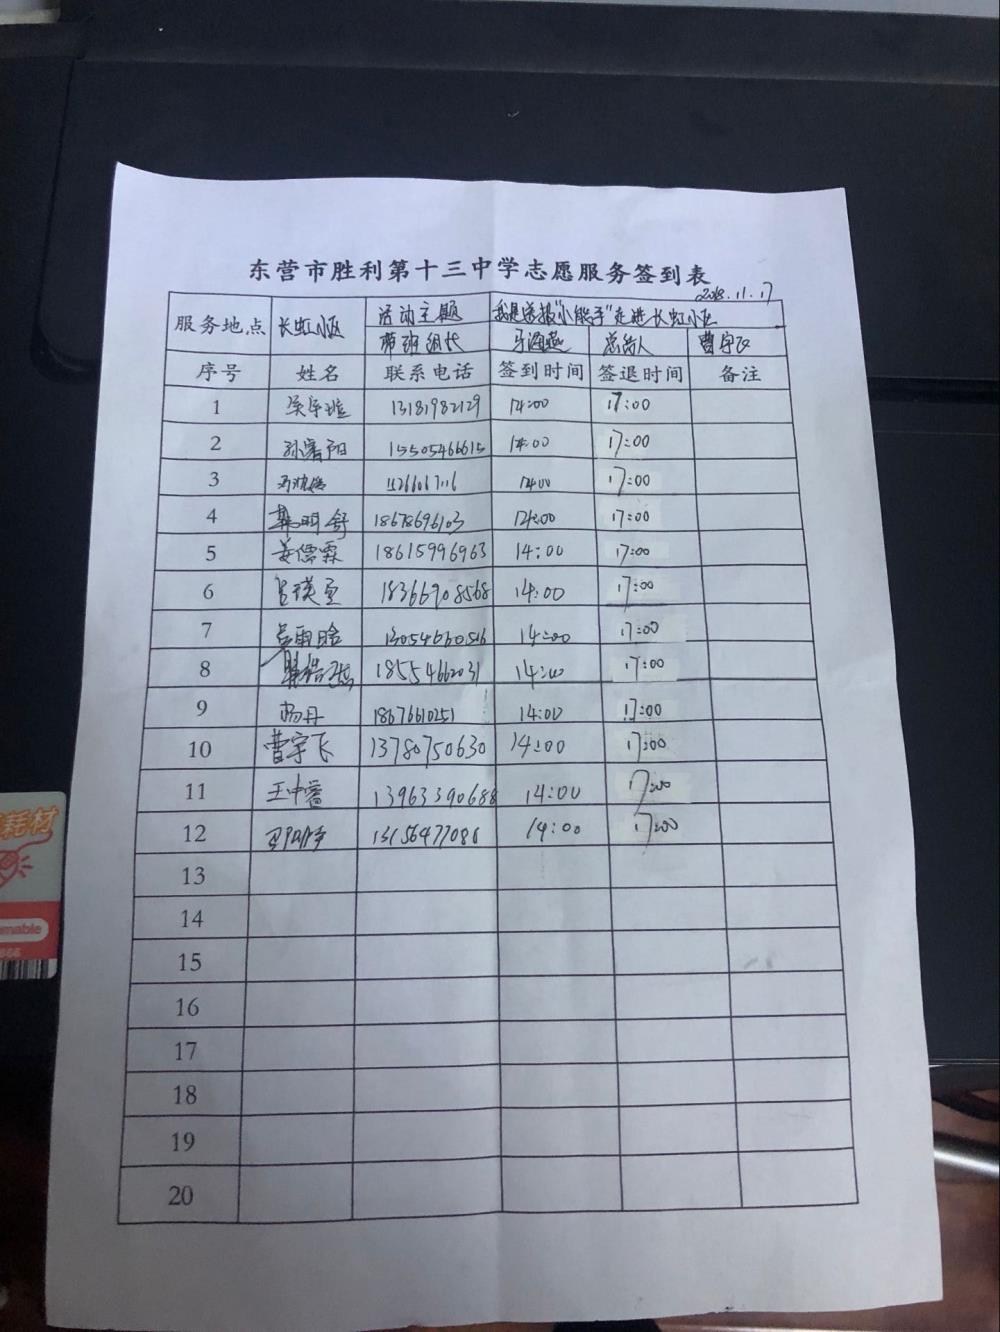 东营市胜利第十三中学志愿服务签到表
2018.11.17
服务地点 长虹小区 活动主题 我是送报"小能手"走进长虹小区
带班组长 马海燕 总带人 曹宇飞
序号 姓名 联系电话 签到时间 签退时间 备注
1 吴宇瑄 13181982129 14:00 17:00
2 孙睿阳 15505466615 14:00 17:00
3 14:00 17:00
4 明舒 18678696103 14:00 17:00
5 姜儒霖 18615996963 14:00 17:00
6 吕瑛 18366908568 14:00 17:00
7 吴雨晗 13054660516 14:00 17:00
8 18554662031 14:00 17:00
9 杨丹 18676610251 14:00 17:00
10 曹宇飞 13780750630 14:00 17:00
11 王中蕾 13963390688 14:00 17:00
12 13156477086 14:00 17:00
13
14
15
16
17
18
19
20
耗材